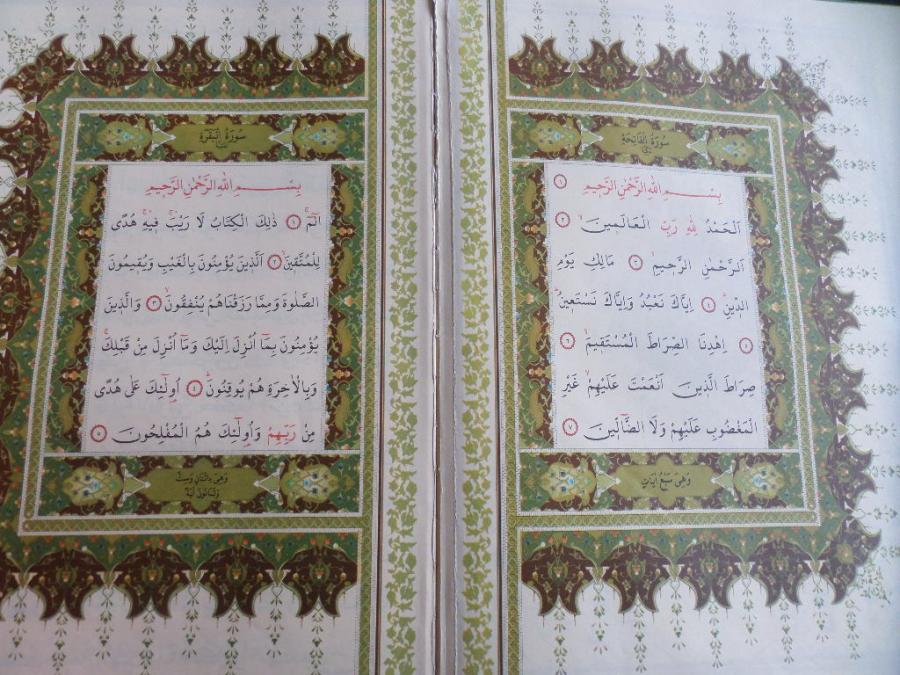 سُورَةُ الْفَاتِحَةِ
بِسْمِ اللهِ الرَّحْمٰنِ الرَّحِيمِ ١
اَلْحَمْدُ لِلّٰهِ رَبِّ الْعَالَمِينَ ٢
اَلرَّحْمٰنِ الرَّحِيمِ ٣ مَالِكِ يَوْمِ
الدِّينِ ٤ اِيَّاكَ نَعْبُدُ وَاِيَّاكَ نَسْتَعِينُ
٥ اِهْدِنَا الصِّرَاطَ الْمُسْتَقِيمَ ٦
صِرَاطَ الَّذِينَ اَنْعَمْتَ عَلَيْهِمْ غَيْرِ
الْمَغْضُوبِ عَلَيْهِمْ وَلَا الضَّٓالِّينَ ٧
وَهِيَ سَبْعُ اٰيَاتٍ
سُورَةُ الْبَقَرَةِ
بِسْمِ اللهِ الرَّحْمٰنِ الرَّحِيمِ
الٓمٓ ١ ذٰلِكَ الْكِتَابُ لَا رَيْبَ فِيهِ هُدًى
لِلْمُتَّقِينَ ٢ اَلَّذِينَ يُؤْمِنُونَ بِالْغَيْبِ وَيُقِيمُونَ
الصَّلٰوةَ وَمِمَّا رَزَقْنَاهُمْ يُنْفِقُونَ ٣ وَالَّذِينَ
يُؤْمِنُونَ بِمَٓا اُنْزِلَ اِلَيْكَ وَمَٓا اُنْزِلَ مِنْ قَبْلِكَ
وَبِالْاٰخِرَةِ هُمْ يُوقِنُونَ ٤ اُولٰٓئِكَ عَلٰى هُدًى
مِنْ رَبِّهِمْ وَاُولٰٓئِكَ هُمُ الْمُفْلِحُونَ ٥
وَهِيَ مِائَتَانِ وَسِتٌّ
وَثَمَانُونَ اٰيَةً